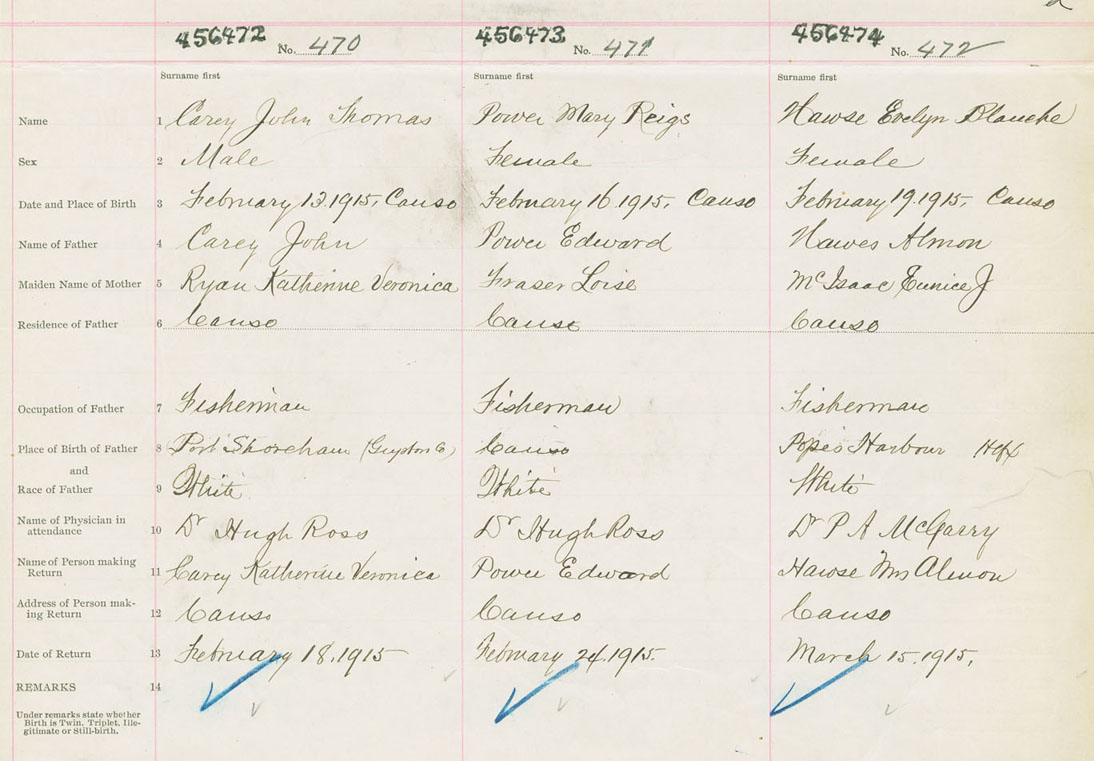 456472 No. 470 456473 No. 471 456474 No. 472
Surname first Surname first Surname first
Name 1 Carey John Thomas Power Mary Reigs Hawse Evelyn Blanche
Sex 2 Male Female Female
Date and Place of Birth 3 February 13.1915, Canso February 16.1915, Canso February 19.1915, Canso
Name of Father 4 Carey John Power Edward Hawes Almon
Maiden Name of Mother 5 Ryan Katherine Veronica Fraser Loise McIsaac Eunice J
Residence of Father 6 Canso Canso Canso
Occupation of Father 7 Fisherman Fisherman Fisherman
Place of Birth of Father 8 Port Shoreham (Guysboro Co) Canso Popes Harbour Hfx
and
Race of Father 9 White White White
Name of Physician in
attendance 10 Dr Hugh Ross Dr Hugh Ross Dr P A McGarry
Name of Person making
Return 11 Carey Katherine Veronica Power Edward Hawse Mrs Almon
Address of Person mak-
ing Return 12 Canso Canso Canso
Date of Return 13 February 18.1915 February 24.1915. March 15.1915,
REMARKS 14
Under remarks state whether
Birth is Twin, Triplet, Ille-
gitimate or Still-birth.